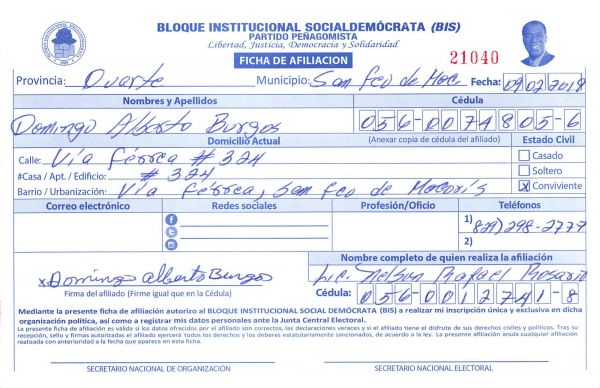 BLOQUE INSTITUCIONAL SOCIALDEMÓCRATA (BIS)
PARTIDO PEÑAGOMISTA
Libertad, Justicia, Democracia y Solidaridad
FICHA DE AFILIACION
21040
Provincia: Duarte Municipio: San Fco de Mac. Fecha: 09022019
Nombres y Apellidos Cédula
Domingo Alberto Burgos 056-0074805-6
Domicilio Actual (Anexar copia de cédula del afiliado) Estado Civil
Calle: Vía Férrea # 324 Casado
#Casa / Apt. / Edificio: # 324 Soltero
Barrio / Urbanización: Vía Férrea, San Fco de Macorís X Conviviente
Correo electrónico Redes sociales Profesión/Oficio Teléfonos
1) 829) 298-2779
2)
Nombre completo de quien realiza la afiliación
x Domingo Alberto Burgos Lic. Nelson Rafael Rosario
Firma del afiliado (Firme igual que en la Cédula) Cédula: 056-0012741-8
Mediante la presente ficha de afiliación autorizo al BLOQUE INSTITUCIONAL SOCIAL DEMÓCRATA (BIS) a realizar mi inscripción única y exclusiva en dicha
organización política, así como a registrar mis datos personales ante la Junta Central Electoral.
La presente ficha de afiliación es válida si los datos ofrecidos por el afiliado son correctos, las declaraciones veraces y si el afiliado tiene el disfrute de sus derechos civiles y políticos. Tras su
recepción, sello y firmas autorizadas el afiliado ejercerá todos los derechos y los deberes estatutariamente sancionados, de acuerdo a la ley. La presente afiliación anula cualquier afiliación
realizada con anterioridad a la fecha que aparece en esta ficha.
SECRETARIO NACIONAL DE ORGANIZACIÓN SECRETARIO NACIONAL ELECTORAL